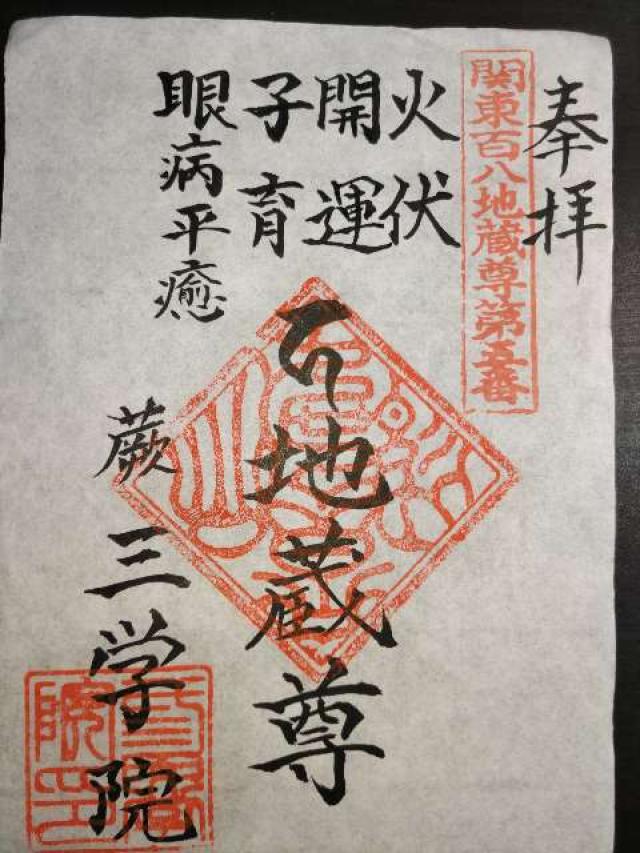 奉拝
関東百八地蔵尊第五番
火伏
開運
子育
眼病平癒
地蔵尊
蕨 三学院
三學院印